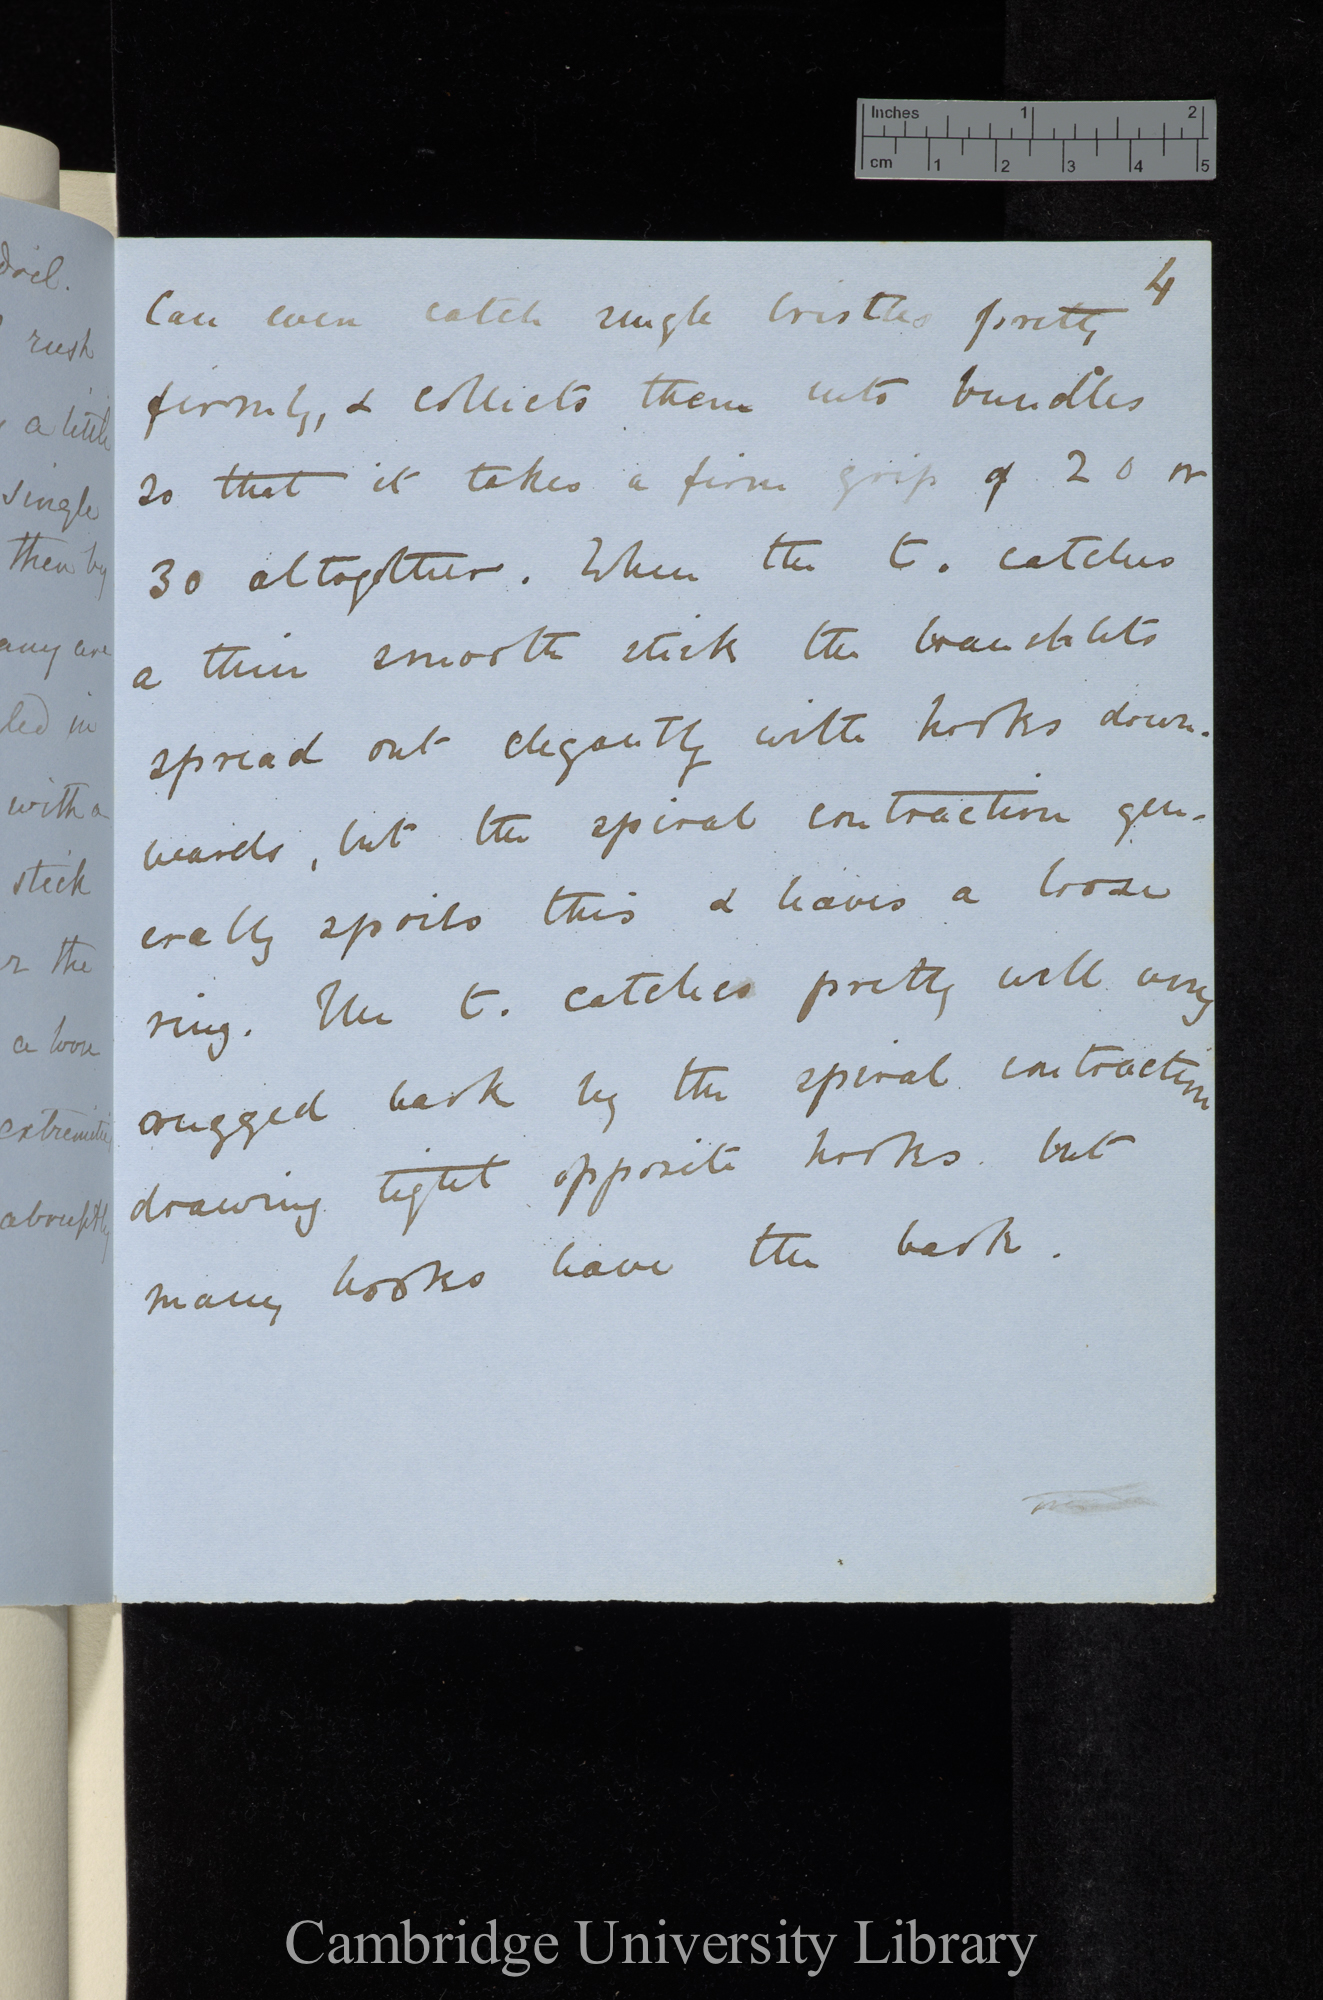 Inches 1 2
cm 1 2 3 4 5
4
Can even catch single bristles pretty
firmly, & collects them into bundles
so that it takes a firm grip of 20 or
30 altogether. When the t. catches
a thin smooth stick the branchlets
spread out elegantly with hooks down-
wards, but the spiral contraction gen-
erally spoils this & leaves a loose
ring. The t. catches pretty well very
rugged bark by the spiral contraction
drawing tight opposite hooks. but
many hooks leave the bark.
rush
a little
single
then by
any are
led in
with a
stick
r the
a loose
extremities
abruptly
Cambridge University Library